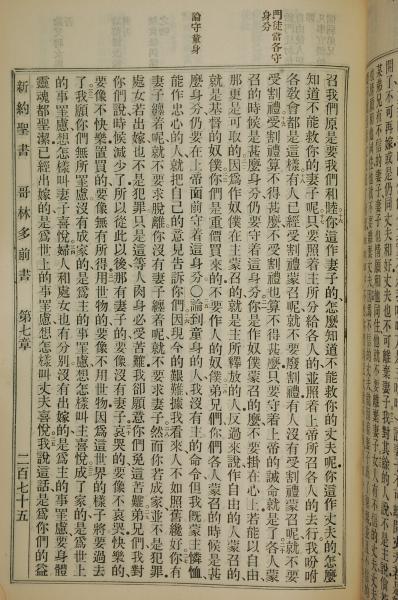 門徒當各守
身分
論守童身
召我們原是要我們和睦你這作妻子的怎麼知道不能救你的丈夫呢你這作丈夫的怎麼
知道不能救你的妻子呢只要照着主所分給各人的並照着上帝所召各人的去行我吩咐
各敎會都是這樣有人已經受割禮蒙召呢就不要廢割禮有人沒有受割禮蒙召呢就不要
受割禮受割禮算不得甚麼不受割禮也算不得甚麼只要守着上帝的誡命就是了各人蒙
召的時候是甚麼身分仍要守着這身分你是作奴僕蒙召的麼不要掛在心上若能以自由
那更是可取的因爲作奴僕在主蒙召的就是主所釋放的人反過來說作自由的人蒙召的
就是基督的奴僕你們是重價買來的不要作人的奴僕弟兄們你們各人蒙召的時候是甚
麼身分仍要在上帝面前守着這身分〇論到童身的人我沒有主的命令但我旣蒙主憐恤
能作忠心的人就把自己的意見告訴你們因現今的艱難據我看來人不如照舊纔好你有
妻子纏着呢就不要求脫離你沒有妻子纏着呢就不要求妻子然而你若成家並不是犯罪
處女若出嫁也不是犯罪只是這等人肉身必受苦難我卻願意你們免這苦難弟兄們我對
你們說時候減少了所以從此以後那有妻子的要像沒有妻子哀哭的要像不哀哭快樂的
要像不快樂置買的要像無有所得用世物的要像不用世物因爲這世界的樣子將要過去
了我願你們無所罣慮沒有成家的是爲主的事罣慮想怎樣叫主喜悅成了家的是爲世上
的事罣慮想怎樣叫妻子喜悅婦人和處女也有分別沒有出嫁的是爲主的事罣慮要身體
靈魂都聖潔已經出嫁的是爲世上的事罣慮想怎樣叫丈夫喜悅我說這話是爲你們的益
新約聖書 哥林多前書 第七章 二百七十五